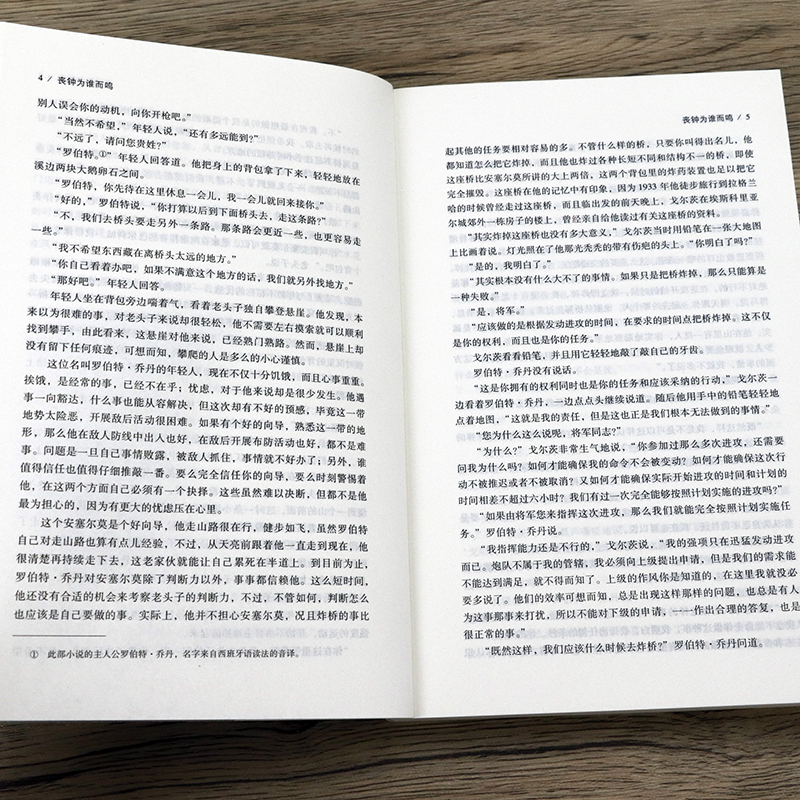 4 / 丧钟为谁而鸣
别人误会你的动机，向你开枪吧。”
“当然不希望，”年轻人说，“还有多远能到？”
“不远了，请问您贵姓？”
“罗伯特。①”年轻人回答道。他把身上的背包拿了下来，轻轻地放在
溪边两块大鹅卵石之间。
“罗伯特，你先待在这里休息一会儿，我一会儿就回来接你。”
“好的，”罗伯特说，“你打算以后到下面桥头去，走这条路？”
“不，我们去桥头要走另外一条路。那条路会更近一些，也更容易走
一些。”
“我不希望东西藏在离桥头太远的地方。”
“你自己看着办吧，如果不满意这个地方的话，我们就另外找地方。”
“那好吧。”年轻人回答。
年轻人坐在背包旁边喘着气，看着老头子独自攀登悬崖。他发现，本
来以为很难的事，对老头子来说却很轻松，他不需要左右摸索就可以顺利
找到攀手，由此看来，这悬崖对他来说，已经熟门熟路。然而，悬崖上却
没有留下任何痕迹，可想而知，攀爬的人是多么的小心谨慎。
这位名叫罗伯特·乔丹的年轻人，现在不仅十分饥饿，而且心事重重。
挨饿，是经常的事，已经不在乎；忧虑，对于他来说却是很少发生。他遇
事一向豁达，什么事也能从容解决，但这次却有不好的预感，毕竟这一带
地势太险恶，开展敌后活动很困难。如果有个好的向导，熟悉这一带的地
形，那么他在敌人防线中出入也好，在敌后开展布防活动也好，都不是难
事。问题是一旦自己事情败露，被敌人抓住，事情就不好办了；另外，谁
值得信任也值得仔细推敲一番。要么完全信任你的向导，要么时刻警惕着
他，在这两个方面自己必须有一个抉择。这些虽然难以决断，但都不是他
最为担心的，因为有更大的忧虑压在心里。
这个安塞尔莫是个好向导，他走山路很在行，健步如飞，虽然罗伯特
自己对走山路也算有点儿经验，不过，从天亮前跟着他一直走到现在，他
很清楚再持续走下去，这老家伙就能让自己累死在半道上。到目前为止，
罗伯特·乔丹对安塞尔莫除了判断力以外，事事都信赖他。这么短时间，
他还没有合适的机会来考察老头子的判断力，不过，不管如何，判断怎么
也应该是自己要做的事。实际上，他并不担心安塞尔莫，况且炸桥的事比
① 此部小说的主人公罗伯特·乔丹，名字来自西班牙语读法的音译。
丧钟为谁而鸣 / 5
起其他的任务要相对容易的多。不管什么样的桥，只要你叫得出名儿，他
都知道怎么把它炸掉，而且他也炸过各种长短不同和结构不一的桥，即使
这座桥比安塞尔莫所讲的大上两倍，这两个背包里的炸药装置也足以把它
完全摧毁。这座桥在他的记忆中有印象，因为 1933 年他徒步旅行到拉格兰
哈的时候曾经走过这座桥，而且临出发的前天晚上，戈尔茨在埃斯科里亚
尔城郊外一栋房子的楼上，曾经亲自给他读过有关这座桥的资料。
“其实炸掉这座桥也没有多大意义，”戈尔茨当时用铅笔在一张大地图
上比画着说。灯光照在了他那光秃秃的带有伤疤的头上。“你明白了吗？”
“是的，我明白了。”
“其实根本没有什么大不了的事情。如果只是把桥炸掉，那么只能算是
一种失败。”
“是，将军。”
“应该做的是根据发动进攻的时间，在要求的时间点把桥炸掉。这不仅
是你的权利，而且也是你的任务。”
戈尔茨看看铅笔，并且用它轻轻地敲了敲自己的牙齿。
罗伯特·乔丹没有说话。
“这是你拥有的权利同时也是你的任务和应该采纳的行动，”戈尔茨一
边看着罗伯特·乔丹，一边点点头继续说道。随后他用手中的铅笔轻轻地
点着地图，“这就是我的责任，但是这也正是我们根本无法做到的事情。”
“您为什么这么说呢，将军同志？”
“为什么？”戈尔茨非常生气地说，“你参加过那么多次进攻，还需要
问我为什么吗？如何才能确保我的命令不会被变动？如何才能确保这次行
动不被推迟或者不被取消？又如何才能确保实际开始进攻的时间和计划的
时间相差不超过六小时？我们有过一次完全能够按照计划实施的进攻吗？”
“如果由将军您来指挥这次进攻，那么我们就能完全按照计划实施任
务。”罗伯特·乔丹说。
“我指挥能力还是不行的，”戈尔茨说，“我的强项只在迅猛发动进攻
而已。炮队不属于我的管辖，我必须向上级提出申请，但是我们的需求能
不能达到满足，就不得而知了。上级的作风你是知道的，在这里我就没必
要多说了。他们的效率可想而知，总是出现这样那样的问题，也总是有人
为这事那事来打扰，所以不能对下级的申请，一一作出合理的答复，也是
很正常的事。”
“既然这样，我们应该什么时候去炸桥？”罗伯特·乔丹问道。